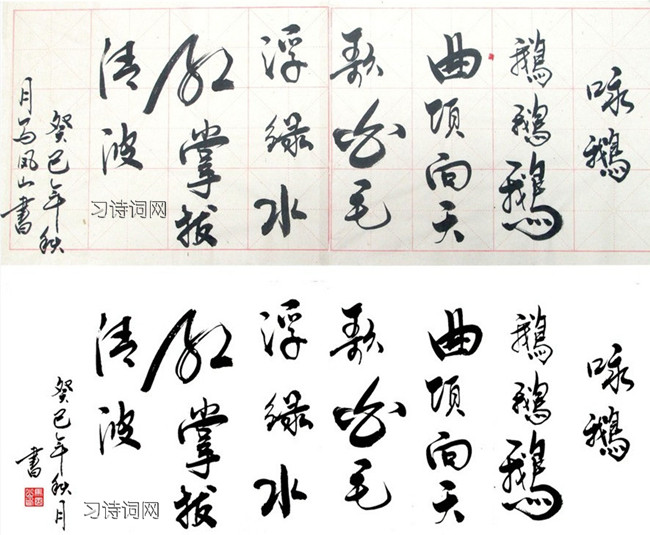 咏鹅
鹅鹅鹅
曲项向天
歌白毛
浮绿水
红掌拨
清波
癸巳年秋
月马凤山书
习诗词网
咏鹅
鹅鹅鹅
曲项向天
歌白毛
浮绿水
红掌拨
清波
癸巳年秋月
书
习诗词网